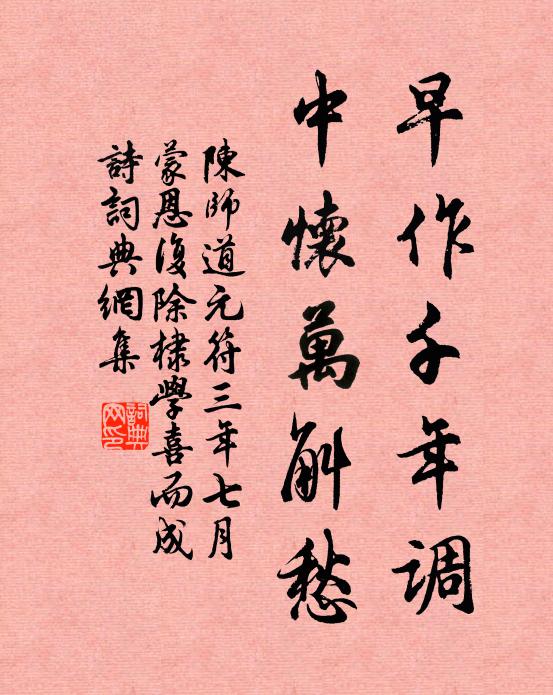 早作千年調
中懷萬斛愁
陳師道元符三年七月
蒙恩復除棣學喜而成
詩詞典網集
詞典
网印